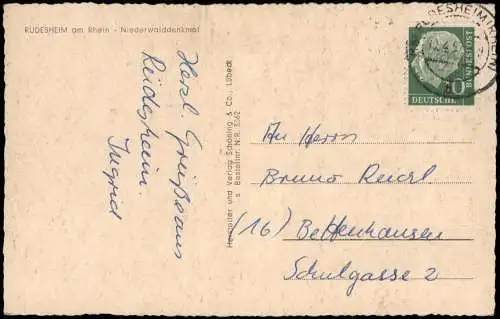 RÜDESHEIM am Rhein - Niederwalddenkmal
Herzl. Grüße aus
Rüdesheim.
Ingrid
Hersteller und Verlag Schöning & Co., Lübeck
Bestellnr. N.R.
RÜDESHEIM (RHEIN)
10
DEUTSCHE
BUNDESPOST
An Herrn
Bruno Reichl
(16) Bettenhausen
Schulgasse 2